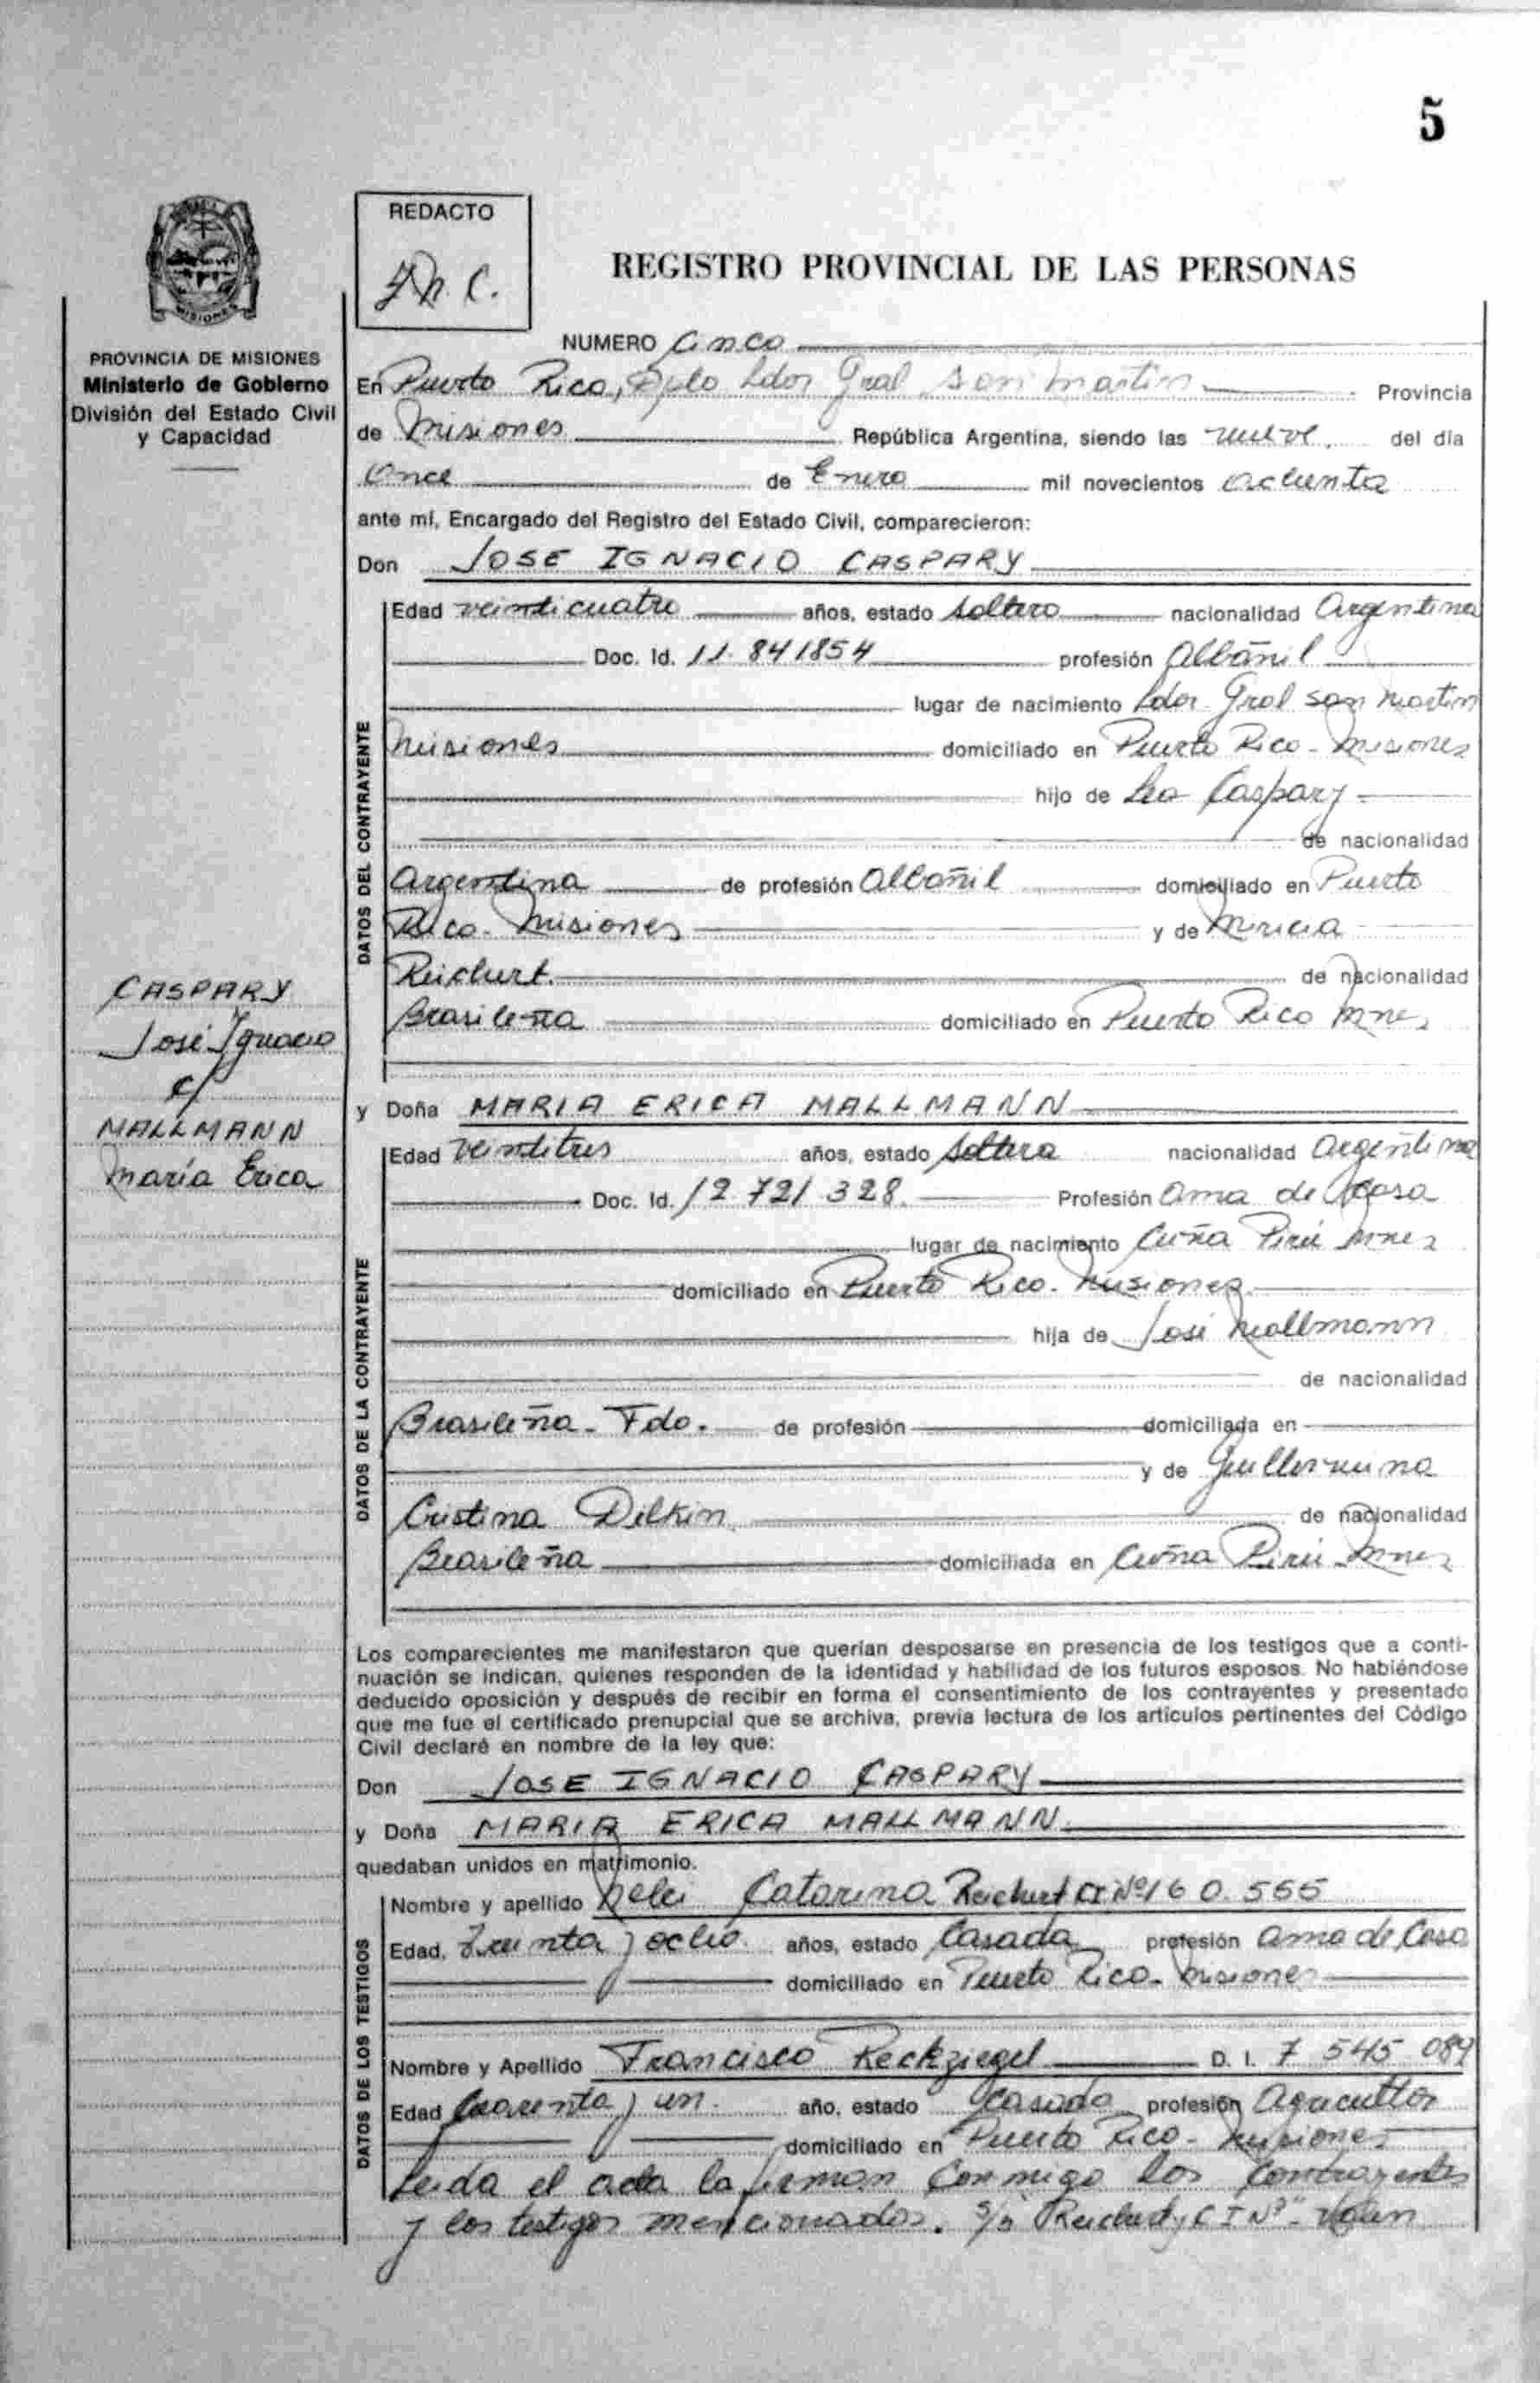 5
REDACTO
REGISTRO PROVINCIAL DE LAS PERSONAS
MISIONES
PROVINCIA DE MISIONES
Ministerio de Gobierno
División del Estado Civil
y Capacidad
CASPARY
José Ignacio
c/
MALLMANN
María Erica
NUMERO Cinco
En Puerto Rico, Dpto Ldor Gral San Martin Provincia
de Misiones República Argentina, siendo las nueve del día
Once de Enero mil novecientos ochenta
ante mí, Encargado del Registro del Estado Civil, comparecieron:
Don JOSE IGNACIO CASPARY
DATOS DEL CONTRAYENTE
Edad veinticuatro años, estado soltero nacionalidad Argentina
Doc. Id. 11.841854 profesión Albañil
lugar de nacimiento Ldor Gral San Martin
Misiones domiciliado en Puerto Rico - Misiones
hijo de Leo Caspary
de nacionalidad
Argentina de profesión Albañil domiciliado en Puerto
Rico - Misiones y de
Reichert de nacionalidad
Brasileña domiciliado en Puerto Rico Mnes
y Doña MARIA ERICA MALLMANN
DATOS DE LA CONTRAYENTE
Edad veintitres años, estado soltera nacionalidad Argentina
Doc. Id. 12.721.328 Profesión Ama de Casa
lugar de nacimiento Cuña Pirú Mnes
domiciliado en Puerto Rico - Misiones
hija de José Mallmann
de nacionalidad
Brasileña - Fdo. de profesión domiciliada en
y de Guillermina
Cristina Dilkin de nacionalidad
Brasileña domiciliada en Cuña Pirú Mnes
Los comparecientes me manifestaron que querían desposarse en presencia de los testigos que a conti-
nuación se indican, quienes responden de la identidad y habilidad de los futuros esposos. No habiéndose
deducido oposición y después de recibir en forma el consentimiento de los contrayentes y presentado
que me fue el certificado prenupcial que se archiva, previa lectura de los artículos pertinentes del Código
Civil declaré en nombre de la ley que:
Don JOSE IGNACIO CASPARY
y Doña MARIA ERICA MALLMANN
quedaban unidos en matrimonio.
DATOS DE LOS TESTIGOS
Nombre y apellido Catarina Reichert CI Nº 160.555
Edad, Treinta y ocho años, estado Casada profesión Ama de Casa
domiciliado en Puerto Rico - Misiones
DATOS DE LOS TESTIGOS
Nombre y Apellido Francisco Reckziegel D. I. 7 545 089
Edad Cuarenta y un año, estado Casado profesión Agricultor
domiciliado en Puerto Rico - Misiones
Leida el acta la firman conmigo los contrayentes
y los testigos mencionados. Reichert y CI Nº" Valen